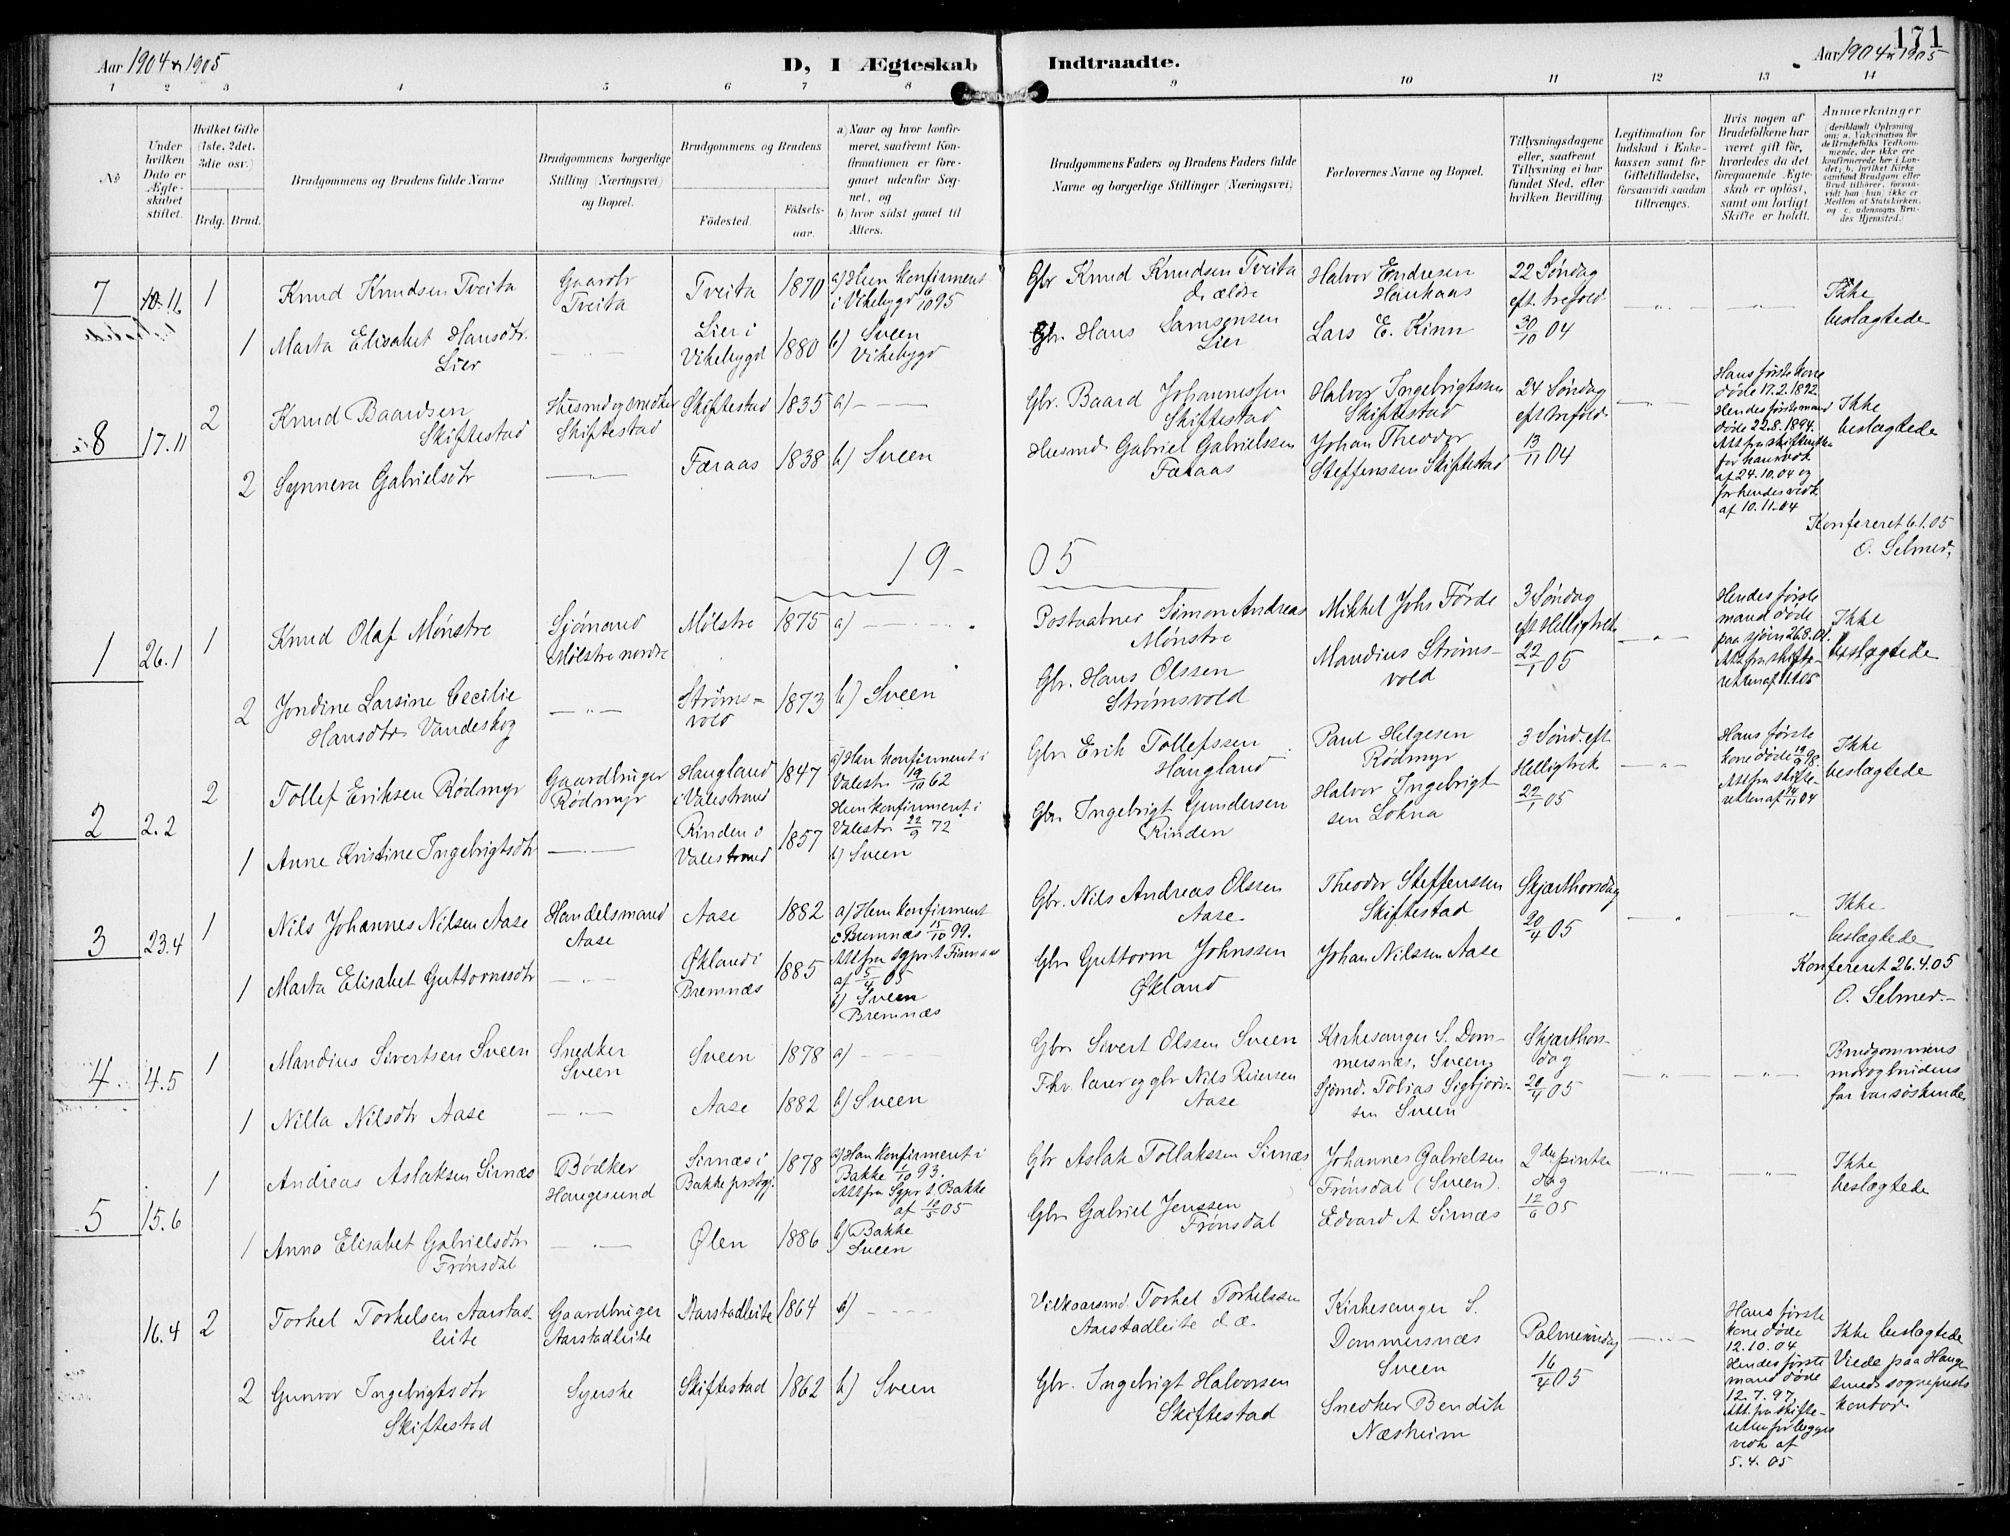 171
Aar 1904 & 1905
D, I Ægteskab Indtraadte.
Aar 1904 & 1905
1 2 3 4 5 6 7 8 9 10 11 12 13 14
No
Under hvilken Dato er Ægteskabet stiftet.
Hvilket Gifte (1ste, 2det, 3die osv.)
Brdg. Brud.
Brudgommens og Brudens fulde Navne
Brudgommens borgerlige Stilling (Næringsvei) og Bopæl.
Brudgommens og Brudens
Födested.
Födselsaar.
a) Naar og hvor konfirmeret, saafremt Konfirmationen er foregaaet udenfor Sognet, og
b) hvor sidst gaaet til Alters.
Brudgommens Faders og Brudens Faders fulde Navne og borgerlige Stillinger (Næringsvei)
Forlovernes Navne og Bopæl.
Tillysningsdagene eller, saafremt Tillysning ei har fundet Sted, efter hvilken Bevilling
Legitimation for Indskud i Enkekassen samt for Giftetilladelse, forsaavidt saadan tiltrænges.
Hvis nogen af Brudefolkene har været gift før, hvorledes da det foregaaende Ægteskab er opløst, samt om lovligt Skifte er holdt.
Anmerkninger
(deriblandt Oplysning om: a. Vakcination for de Brudefolks Vedkommende, der ikke ere konfirmerede her i Landet; b. hvilket Kirkesamfund Brudgom eller Brud tilhører, forsaavidt han (hun) ikke er Medlem af Statskirken, og c. udensogns Brudes Hjemsted.
7
16.11
1
Knud Knudsen Tveita
Gaardbr
Tveita
Tveita
1870
a) Hun konfirmeret
i Vikebygd 6/10 95
Gbr Knud Knudsen Tveita
d. ældre
Halvor Endresen
Haukaas
22 Søndag
eft trefold.
30/10 04
Ikke
beslægtede
1
Marta Elisabet Hansdtr.
Lier
Lier i
Vikebygd
1880
b) Sveen
Vikebygd
Gbr. Hans Samsonsen
Lier
Lars E. Kinn
8
17.11
2
Knud Baardsen
Skiftestad
Husmd og snedker
Skiftestad
Skiftestad
1835
a) — —
Gbr. Baard Johannessen
Skiftestad
Halvor Ingebrigtssen
Skiftestad
24 Søndag
eft trefold.
13/11 04
Hans første kone
døde 17.2.1892
Hendes første mand
døde 22.8.1894.
Att fra skifteretten
for hans vedk
af 24.10.04 og
for hendes vedk
af 10.11.04
Ikke
beslægtede
2
Synneva Gabrielsdtr
Færaas
1838
b) Sveen
Husmd. Gabriel Gabrielssen
Færaas
Johan Theodor
Steffenssen Skiftestad
Konfereret 6.1.05
O. Selmer.
19 - 05
1
26.1
1
Knud Olaf Mønstre
Sjømand
Mølstre nordre
Mølstre
1875
a) — —
Postaabner Simon Andreas
Mønstre
Mikkel Johs Førde
3 Søndag
eft Helligtrek
22/1 05
Hendes første
mand døde
paa sjøen 26.8.01.
Att fra skifte-
retten af 11.1.05
Ikke
beslægtede
2
Jondine Larsine Cecilie
Hansdtr Vandeskog
Strøms-
vold
1873
b) Sveen
Gbr. Hans Olssen
Strømsvold
Mandius Strøms-
vold
2
2.2
2
Tollef Eriksen Rødmyr
Gaardbruger
Rødmyr
Haugland
i Valestrand
1847
a) Han konfirmeret i
Valestr 19/10 62
Gbr Erik Tollefssen
Haugland
Paul Helgesen
Rødmyr
3 Sønd. eft
Helligtrek
22/1 05
Hans første
kone døde 19/9 98.
Att fra skifte
retten af 14/11 04
Ikke
beslægtede
1
Anne Kristine Ingebrigtsdtr
Rinden i
Valestrand
1857
Hun konfirmeret i
Valestr 22/9 72
b) Sveen
Gbr Ingebrigt Gundersen
Rinden
Halvor Ingebrigt
sen Lokna
3
23.4
1
Nils Johannes Nilsen Aase
Handelsmand
Aase
Aase
1882
a) Hun konfirmeret
i Bremnæs 15/10 99.
Att fra sgpr. t. Finnaas
af 5/4 05
Gbr. Nils Andreas Olssen
Aase.
Theodor Steffenssen
Skiftestad
Skjærthorsdag
20/4 05
Ikke
beslægtede
1
Marta Elisabet Guttormsdtr
Økland i
Bremnæs
1885
b) Sveen
Bremnæs
Gbr Guttorm Johnssen
Økland
Johan Nilssen Aase
Konfereret 26.4.05
O. Selmer.
4
4.5
1
Mandius Sivertsen Sveen
Snedker
Sveen
Sveen
1878
a) — —
Gbr Sivert Olssen Sveen
Kirkesanger S. Dom-
mersnæs, Sveen
Skjærthors-
dag
20/4 05
Brudgommens
mor og brudens
far var søskende
1
Nilla Nilsdtr Aase
Aase
1882
b) Sveen
Fhv. lærer og gbr Nils Reiersen
Aase
Sjømd. Tobias Sigbjørn-
sen Sveen
5
15.6
1
Andreas Aslaksen Sirnæs
Bødker
Haugesund
Sirnæs i
Bakke prstgj.
1878
a) Han konfirmeret i
Bakke 1/10 93.
Att fra Sgpr. t. Bakke
af 10/5 05
Gbr Aslak Tollakssen Sirnæs
Johannes Gabrielsen
Frønsdal (Sveen).
2den pinse
dag
12/6 05
Ikke
beslægtede
1
Anna Elisabet Gabrielsdtr
Frønsdal
Ølen
1886
b) Bakke
Sveen
Gbr Gabriel Jenssen
Frønsdal
Edvard A Sirnæs
16.4
2
Torkel Torkelsen Aarstad-
leite
Gaardbruger
Aarstadleite
Aarstadleite
1864
a) — —
Vilkaarsmd Torkel Torkelssen
Aarstadleite d. æ.
Kirkesanger S.
Dommersnæs
Sveen
Palmesøndag
16/4 05
Hans første
kone døde
12.10.04
Hendes første
mand døde
12.7.97.
Att. fra skifte-
retten for begges
vedk af
5.4.05
Ikke beslægtede
Viede paa Hauge
sunds sogneprests
kontor
2
Gunvor Ingebrigtsdtr
Skiftestad
Syerske
Skiftestad
1862
b) Sveen
Gbr. Ingebrigt Halvorsen
Skiftestad
Snedker Bendik
Næsheim